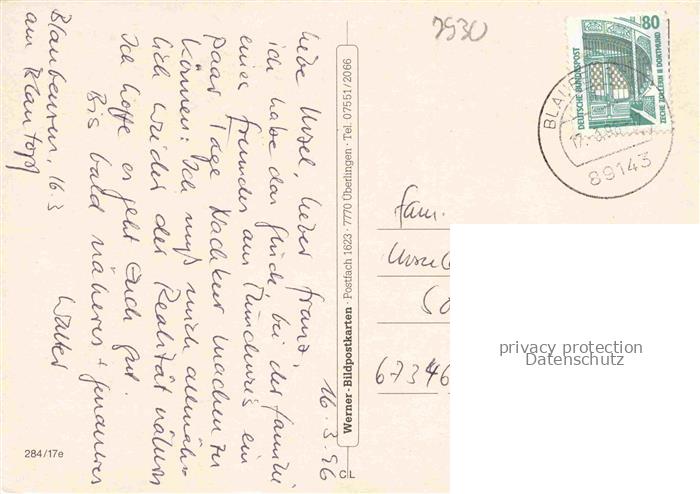 7930
80
DEUTSCHE BUNDESPOST
ZECHE ZOLLERN II DORTMUND
BLAU
89143
16.3.96
Liebe Ursel, lieber Franz,
ich habe das Glück, bei der Familie
eines Freundes aus Münchweis ein
paar Tage Nachkur machen zu
können. Ich muß mich allmäh-
lich wieder der Realität nähern
Ich hoffe es geht Euch gut.
Bis bald näheres + genaueres
Walter
Blaubeuren, 16.3
am Blautopf
Werner-Bildpostkarten · Postfach 1623 · 7770 Überlingen · Tel. 07551/2066
CL
284/17e
Fam.
67346
privacy protection
Datenschutz